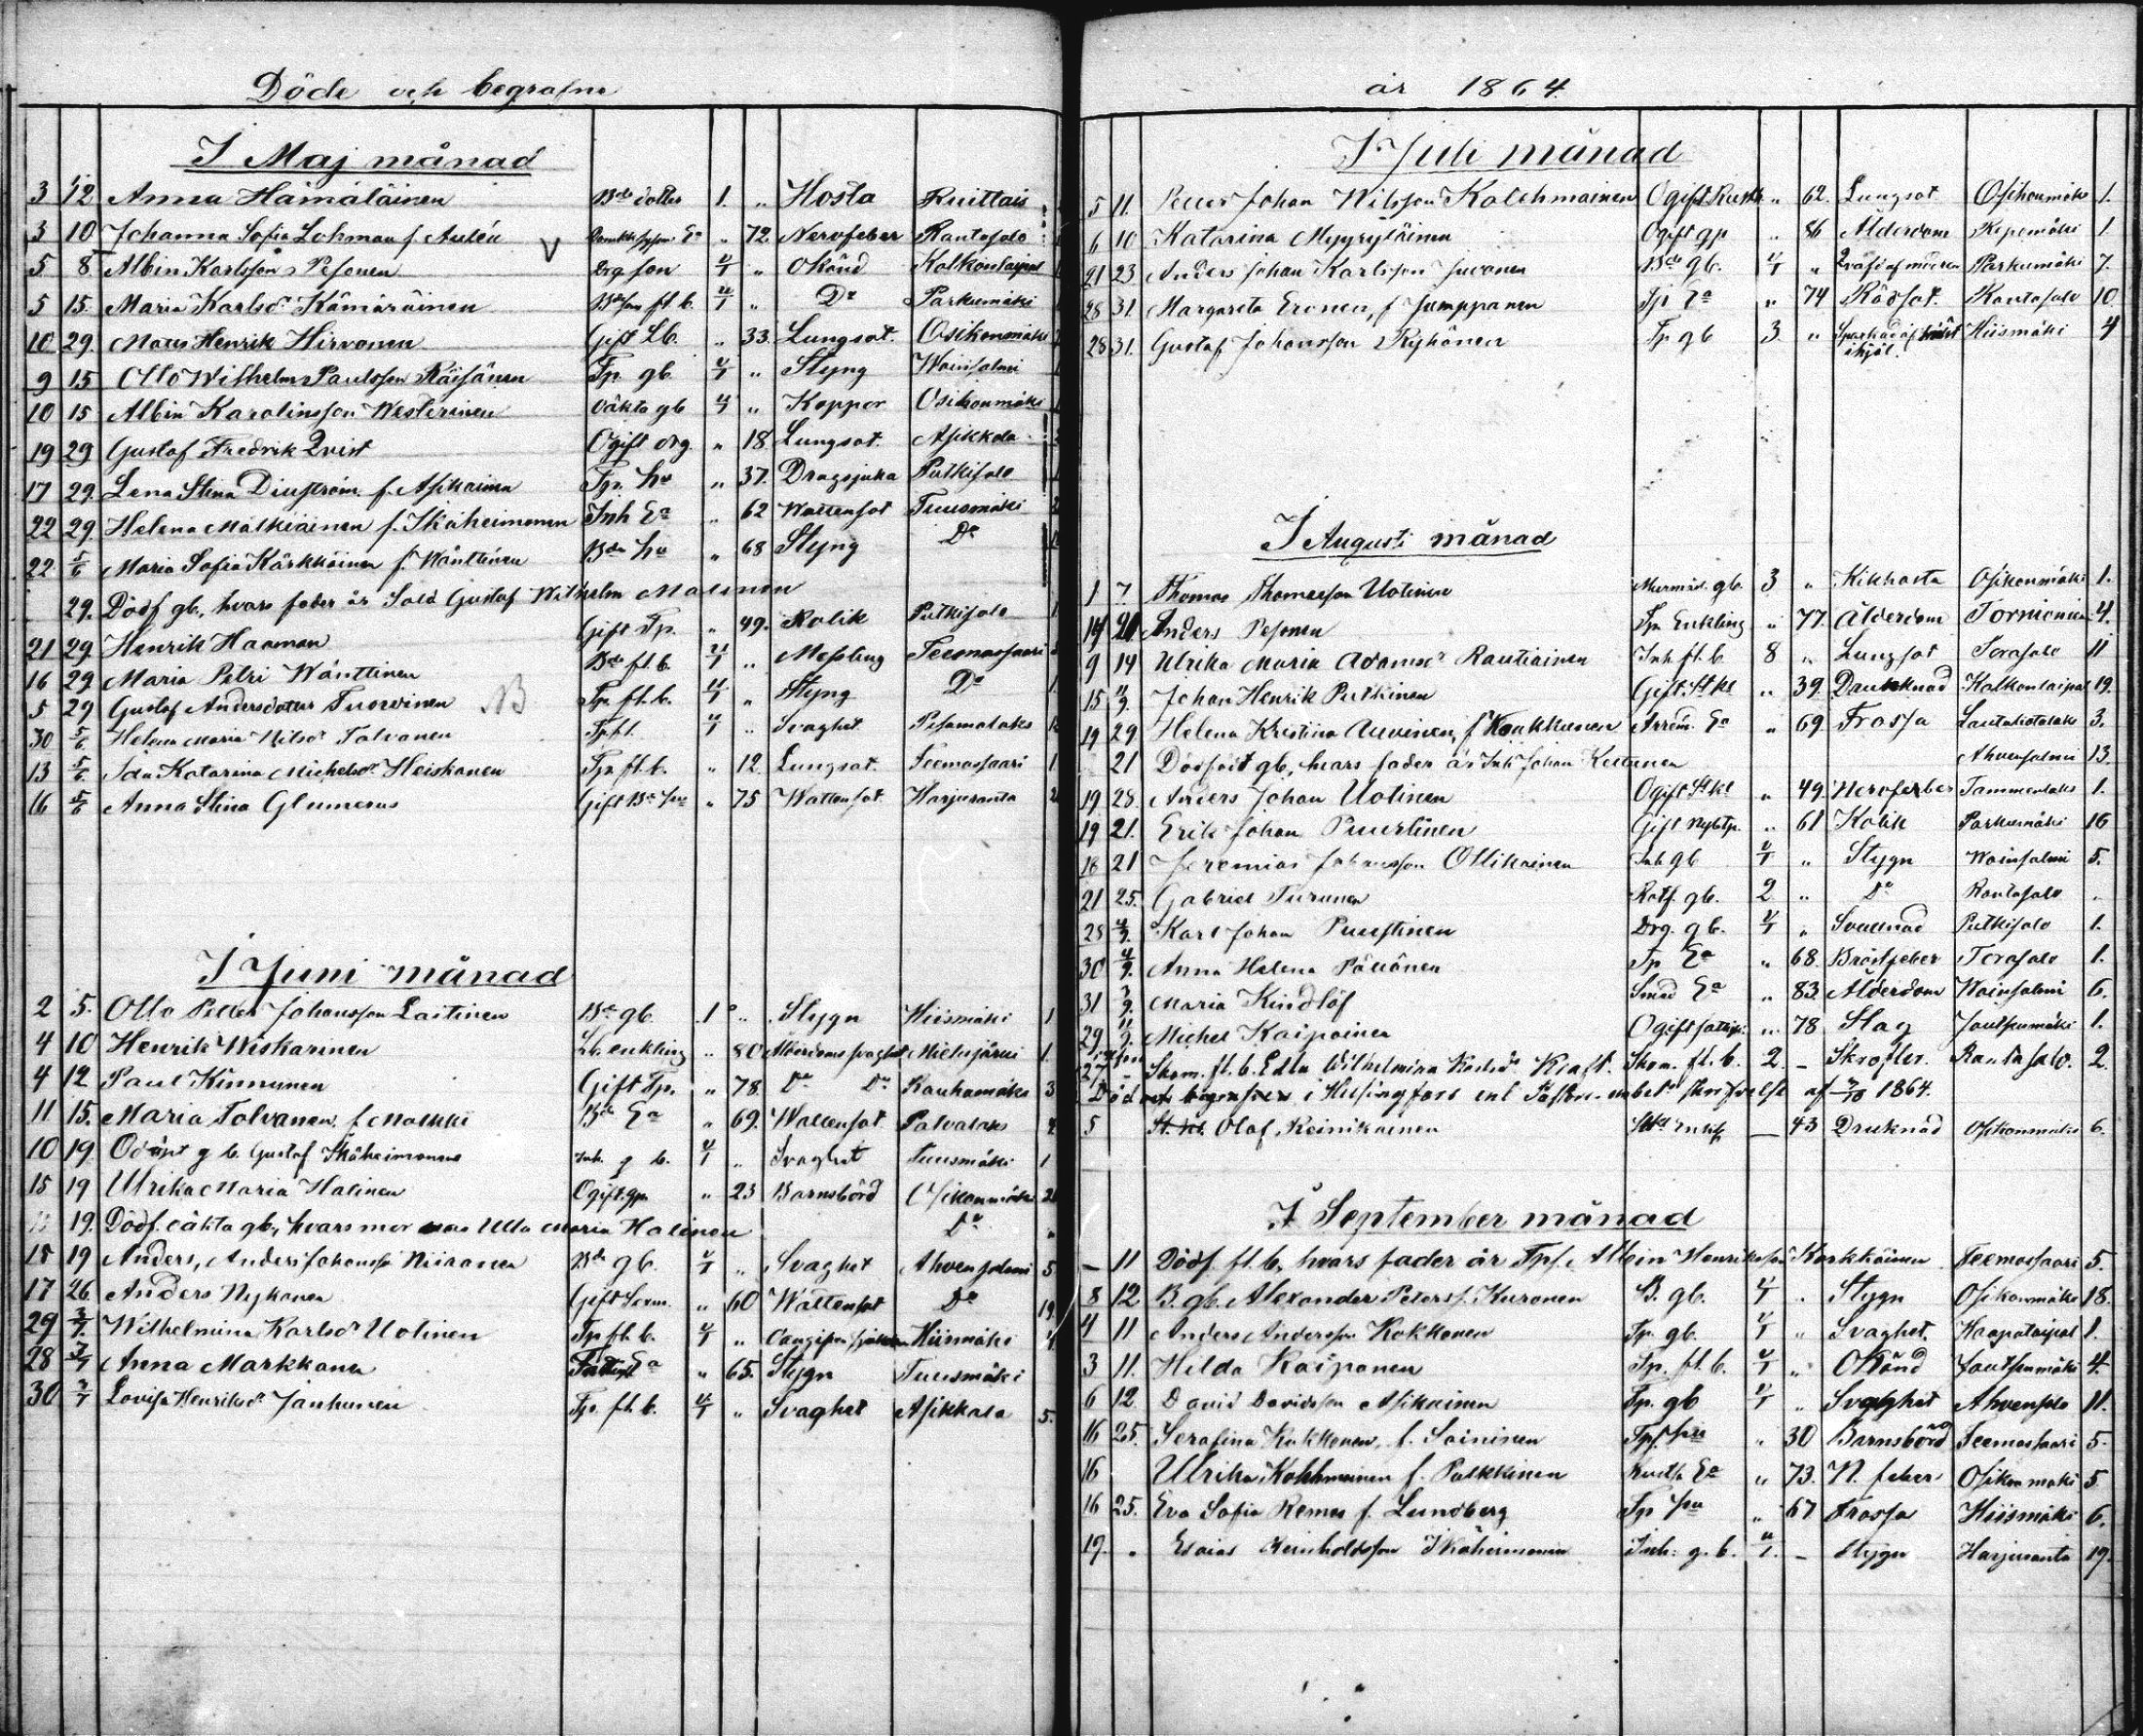 Döde och begrafne
I Maj månad
3 12 Anna Hämäläinen Bde dotter 1. " Hosta Ruittais
3 10 Johanna Sofia Lohman f. Aulén Ea " 72. Nervfeber Rantasalo
5 8 Albin Karlsson Pesonen Drg son 4/1 " Okänd Kolkontaipal
5 15. Maria Karlsdr Kämäräinen fl. b. 4/1 " Do Parkumäki
10 29. Maus Henrik Hirvonen Gift Lb. " 33. Lungsot. Osikonmäki
9 15 Otto Wilhelm Paulsson Räisänen Tp. gb. 4/1 " Styng Wainsalmi
10 15 Albin Karolinsson Westerinen oäkta gb 4/1 " Koppor Osikonmäki
19 29 Gustaf Fredrik Qvist Ogift drg. " 18 Lungsot. Asikkala
17 29. Lena Stina Dinström. f. Asikainen Tp. hu " 37. Dragsjuka Putkisalo
22 29. Helena Malkiainen f. Ikäheimonen Inh Ea " 62 Wattensot Tuusmäki
22 5/6 Maria Sofia Kärkkäinen f. Wänttinen Bde hu " 68 Styng Do
29. Dödf gb., hvars fader är Sold Gustaf Wilhelm Malinen
21 29 Henrik Haaman Gift Tp. " 49. Kolik Putkisalo 1
16 29 Maria Petri Wänttinen Bde fl. b. 21/1 " Messling Teemassaari
5 29 Gustaf Andersdotters Tuovinen NB Tp. fl. b. 4/1 " Styng Do 1.
30 5/6 Helena Maria Nilsdr Tolvanen Tp fl. 4/1 " Svaghet Pesamalaks
13 5/6 Ida Katarina Michelsdr Heiskanen Tp. fl. b. " 12. Lungsot. Teemassaari 1
16 5/6 Anna Stina Glumerus Gift " 75 Wattensot. Harjuranta
I Juni månad
2 5. Otto Petter Johansson Laitinen Bde gb. 1 " Stygn Hiismäki 1
4 10 Henrik Wiskarinen Lb. enkling " 80 Ålderdoms svaghet Mielusjärvi 1.
4 12 Paul Kinnunen Gift Tp. " 78. Do Do Rauhamäki 3
11 15. Maria Tolvanen f. Malkki Bde Ea " 69. Wattensot. Palvalaks
10 19 Odöpt g b. Gustaf Ikäheimonens Inh. g b. 4/1 " Svaghet Tuusmäki 1
15 19 Ulrika Maria Halinen Ogift gp. " 23 Barnsbörd Osikonmäki
19. Dödf. oäkta gb., hvars mor var Ulla Maria Halinen Do
15 19 Anders, Anders Johanss Niiranen Bde gb. 4/1 " Svaghet Ahvensalmi 5
17 26 Anders Nykanen Gift " 60 Wattensot Do 19
29 3/7. Wilhelmina Karlsdr Uotinen Tp fl. b. 4/1 " Hiismäki
28 3/7 Anna Markkanen Ea " 65. Stygn Tuusmäki
30 3/7 Lovisa Henriksdr Janhunen Tp. fl. b. 4/1 " Svaghet Asikkala 5.
år 1864.
I Juli månad
5 11. Petter Johan Nilsson Kolehmainen Ogift Rusth " 62. Lungsot. Osikonmäki 1.
6 10 Katarina Myyryläinen Ogift gp " 86 Ålderdom Repomäki 1
21 23 Anders Johan Karlsson Juvonen Bde gb. 4/1 " Qväfd af modren Parkumäki 7.
28 31. Margareta Eronen, f Jamppanen Tp Ea " 74 Rödsot. Rantasalo 10
28 31. Gustaf Johansson Ryhänen Tp gb 3. " Sparkad af häst ihjäl. Hiismäki 4
I Augusti månad
1 7 Thomas Thomasson Uotinen gb. 3 " Kikhosta Osikonmäki 1.
14 21 Anders Pesonen Tp Enkling " 77. Ålderdom Torniemi 4.
9 14 Ulrika Maria Adamsdr Rautiainen Inh fl. b 8 " Lungsot Torasalo 11
15 11/9. Johan Henrik Putkinen Gift. St kl " 39. Drunknad Kolkontaipal 19.
19 29 Helena Kristina Auvinen, f Kaukkunen Arrend. Ea " 69. Frossa Lautakotalaks 3.
21 Dödfödt gb., hvars fader är Inh Johan Kettunen Ahvensalmi 13
19 28. Anders Johan Uotinen Ogift St kl " 49. Nervfeber Tammenlaks 1.
19 21. Erik Johan Puustinen Gift Nybtp. " 61 Kolik Parkumäki 16
18 21 Jeremias Johansson Ollikainen Inh gb 4/1 " Stygn Wainsalmi 5.
21 25. Gabriel Turunen Rotf. gb. 2 " Do Rantasalo "
28 4/9. Karl Johan Puustinen Drg. gb. 4/1 " Svullnad Putkisalo 1.
30 4/9. Anna Helena Pöllänen Tp Ea " 68. Bröstfeber Torasalo 1.
31 Maria Kindlöf Smed Ea " 83. Ålderdom Wainsalmi 6.
29 11/9 Michel Kaipainen Ogift " 78 Slag Joutsenmäki 1.
27 - Skom. fl. b. Edla Wilhelmina Karlsdr Kraft. Skom. fl. b. 2. - Skrofler. Rantasalo. 2.
Död och begrafven i Helsingfors enl Pastors-embets skrifvelse af 1864.
5 St. kl. Olof Reinikainen St kl enkl — 43 Druknad Osikonmäki 6.
I September månad
- 11 Dödf. fl. b., hvars fader är Tpf. Albin Henriksson Karkkäinen Teemassaari 5.
8 12 B. gb. Alexander Peters s. Kuronen B. gb. 4/1 " Stygn Osikonmäki 18.
4 11 Anders Andersson Kokkonen Tp. gb. 4/1 " Svaghet. Haapataipal 1.
3 11. Hilda Kaiponen Tp. fl. b. 4/1 " Okänd Joutsenmäki 4.
6 12. David Davidsson Asikainen Tp. gb 4/1 " Svaghet Ahvensalo 11.
16 25. Serafina Kukkonen, f. Soininen Tpf. hu " 30 Barnsbörd Teemassaari 5.
16 Ulrika Kohhmainen f. Pulkkinen Rusth Ea " 73. N. feber Osikonmäki 5
16 25. Eva Sofia Remes f. Lundberg Tp hu " 67 Frossa Hiismäki 6.
19. " Esaias Reinholdsson Ikäheimonen Inh: g. b. 4/1. - Stygn Harjuranta 19.